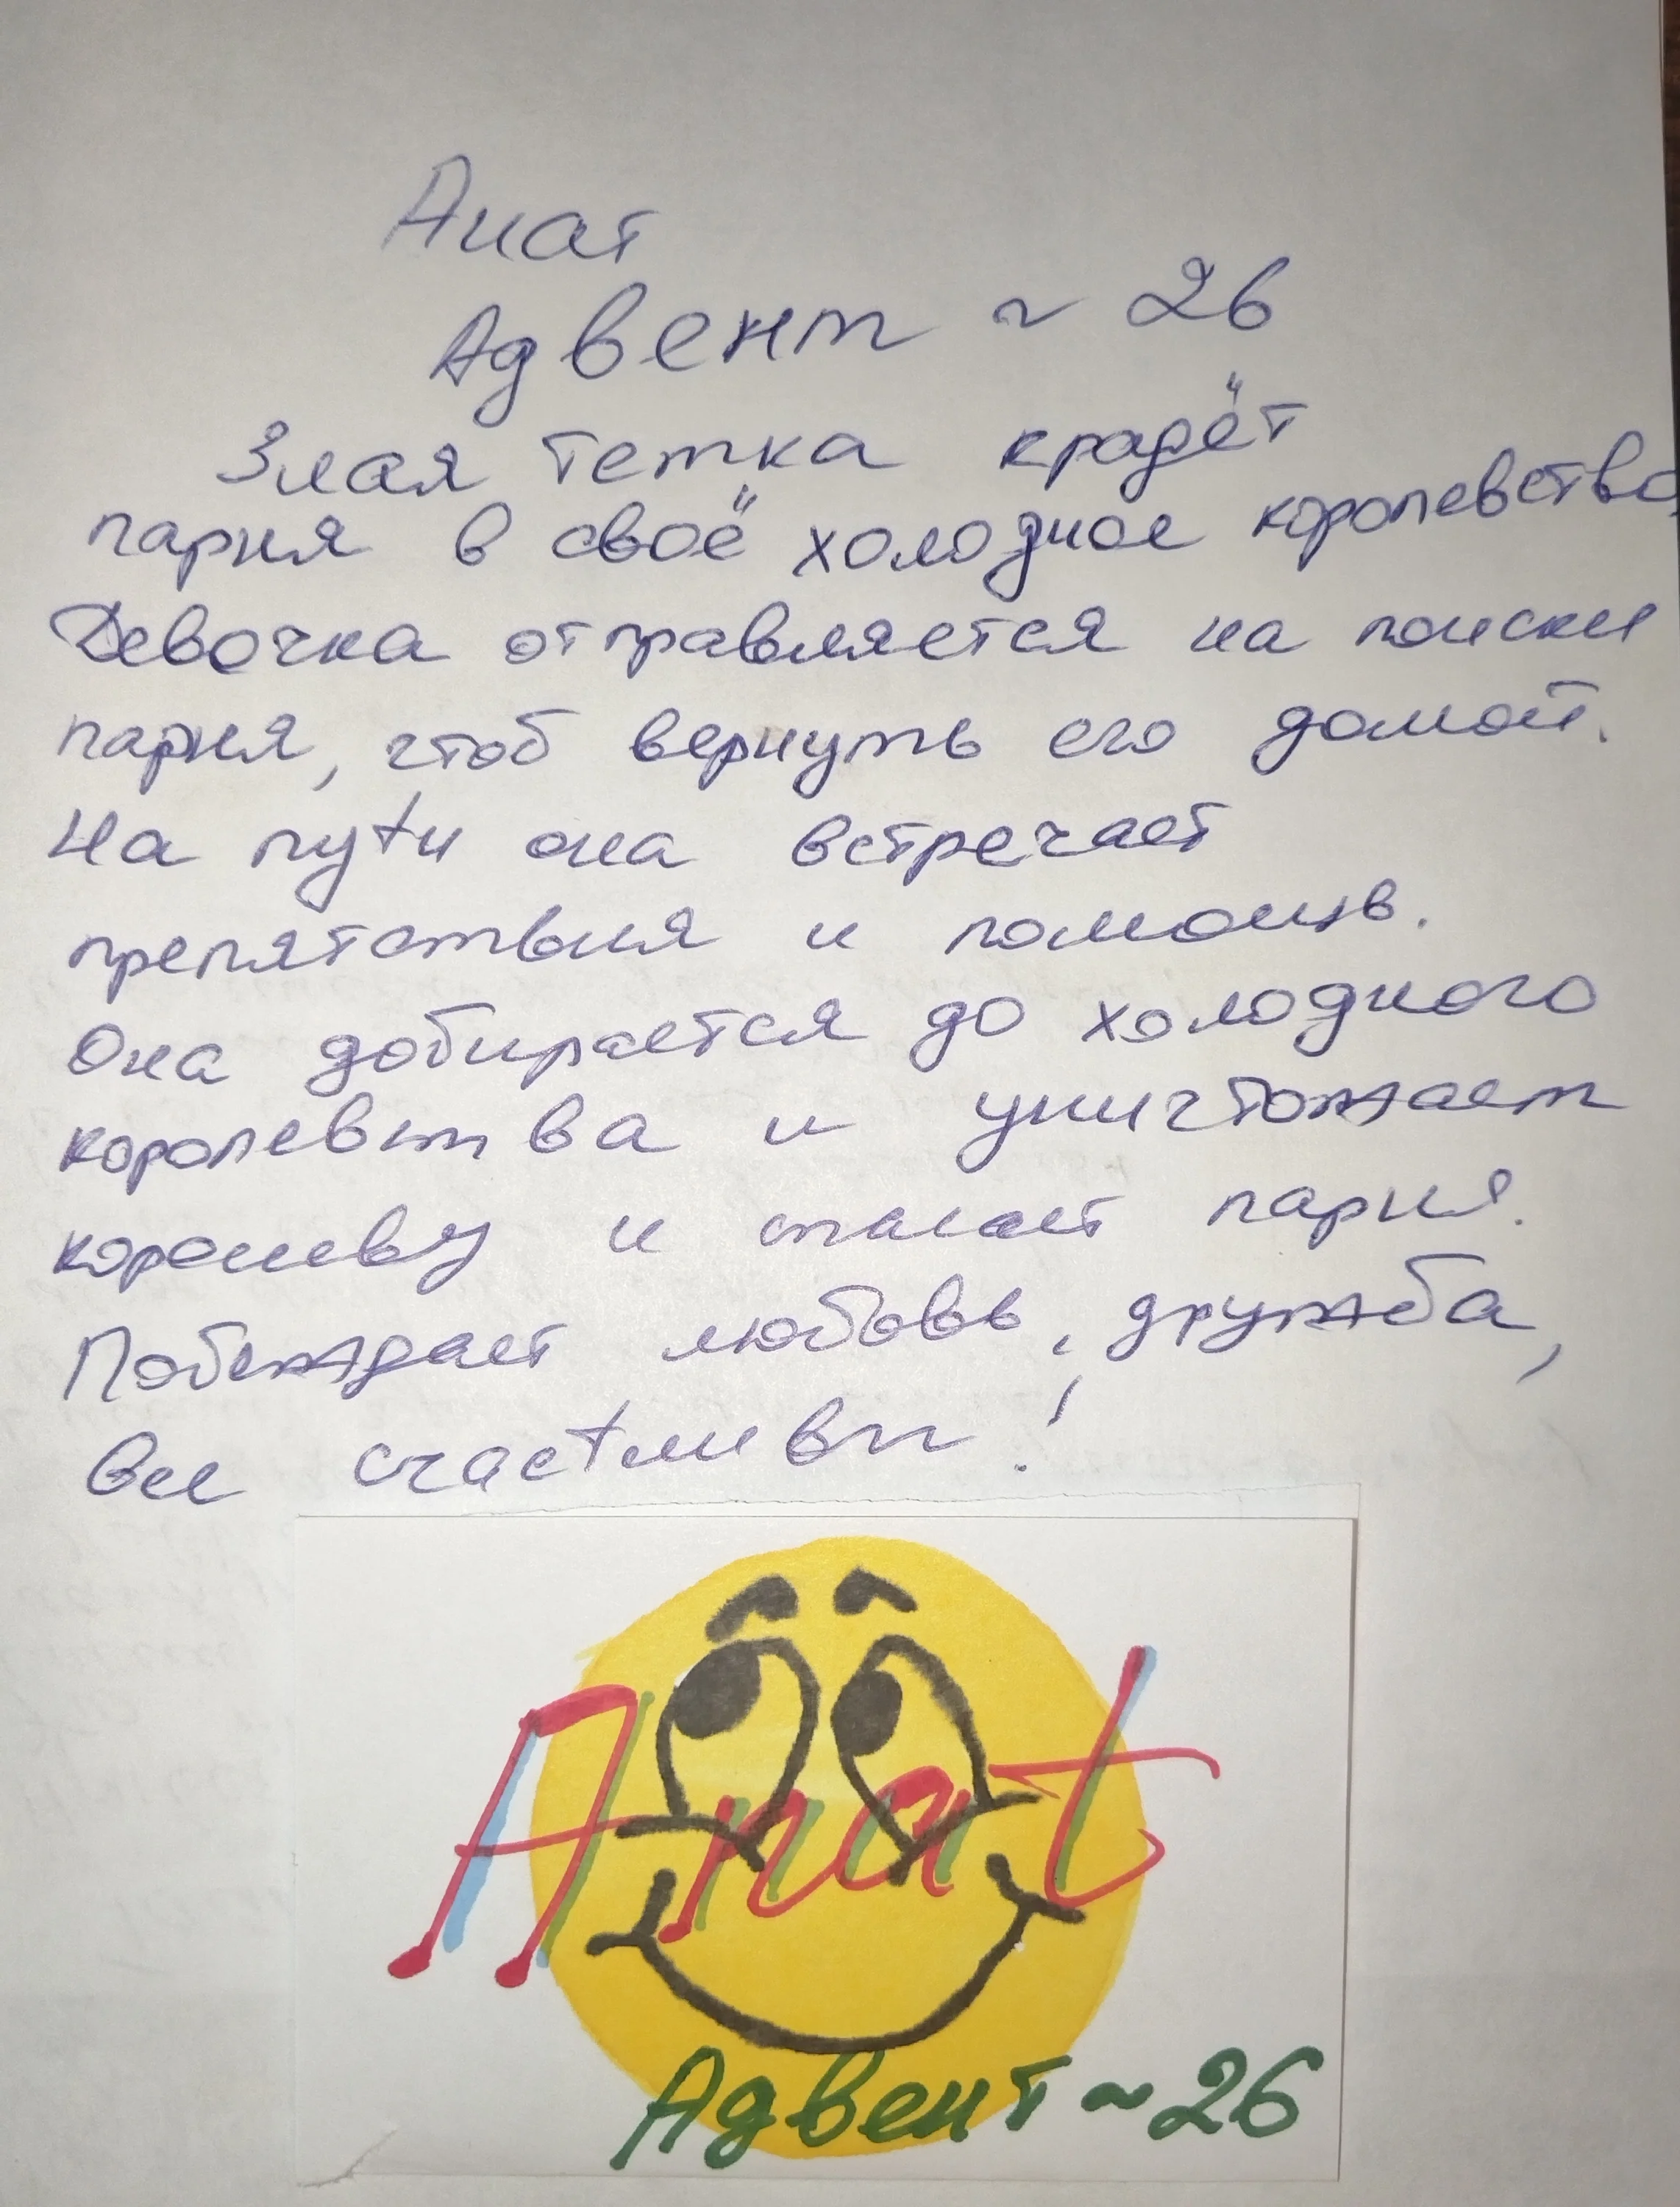 Анат
Адвент ~ 26
Злая тетка крадёт
парня в своё холодное королевство,
Девочка отправляется на поиски
парня, чтоб вернуть его домой.
На пути она встречает
препятствия и помощь.
Она добирается до холодного
королевства и уничтожает
королеву и спасает парня.
Побеждает любовь, дружба,
все счастливы!
Anat
Адвент ~ 26